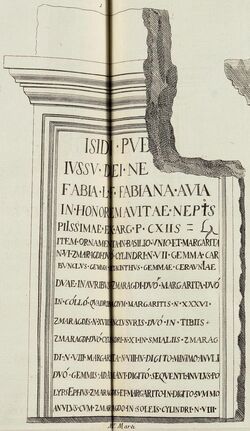 ISID · PVE
IVSSV · DEI · NE
FABIA · L · F · FABIANA · AVIA
IN · HONOREM · AVITAE · NEPTIS
PIISSIMAE · EX · ARG · P · CXIIS
ITEM · ORNAMENTA · IN · BASILIO · VNIO · ET · MARGARITA
N · VI · ZMARAGDI · DVO · CYLINDRI · N · VII · GEMMA · CAR
BVNCLVS · GEMMA · HYACINTHVS · GEMMAE · CERAVNIAE
DVAE · IN · AVRIBVS · ZMARAGDI · DVO · MARGARITA · DVO
IN · COLLO · QVADRIBACIVM · MARGARITIS · N · XXXVI
ZMARAGDIS · N · XVIII · IN · CLVSVRIS · DVO · IN · TIBIIS
ZMARAGDI · DVO · CYLINDRI · N · XI · IN · SMIALIIS · ZMARAG
DI · N · VIII · MARGARITA · N · VIII · IN · DIGITO · MINIMO · ANVLI
DVO · GEMMIS · ADAMANT · DIGITO · SEQVENTI · ANVLVS · PO
LYPSEPHVS · ZMARAGDIS · ET · MARGARITO · IN · DIGITO · SVMMO
ANVLVS · CVM · ZMARAGDO · IN · SOLEIS · CYLINDRI · N · VIII